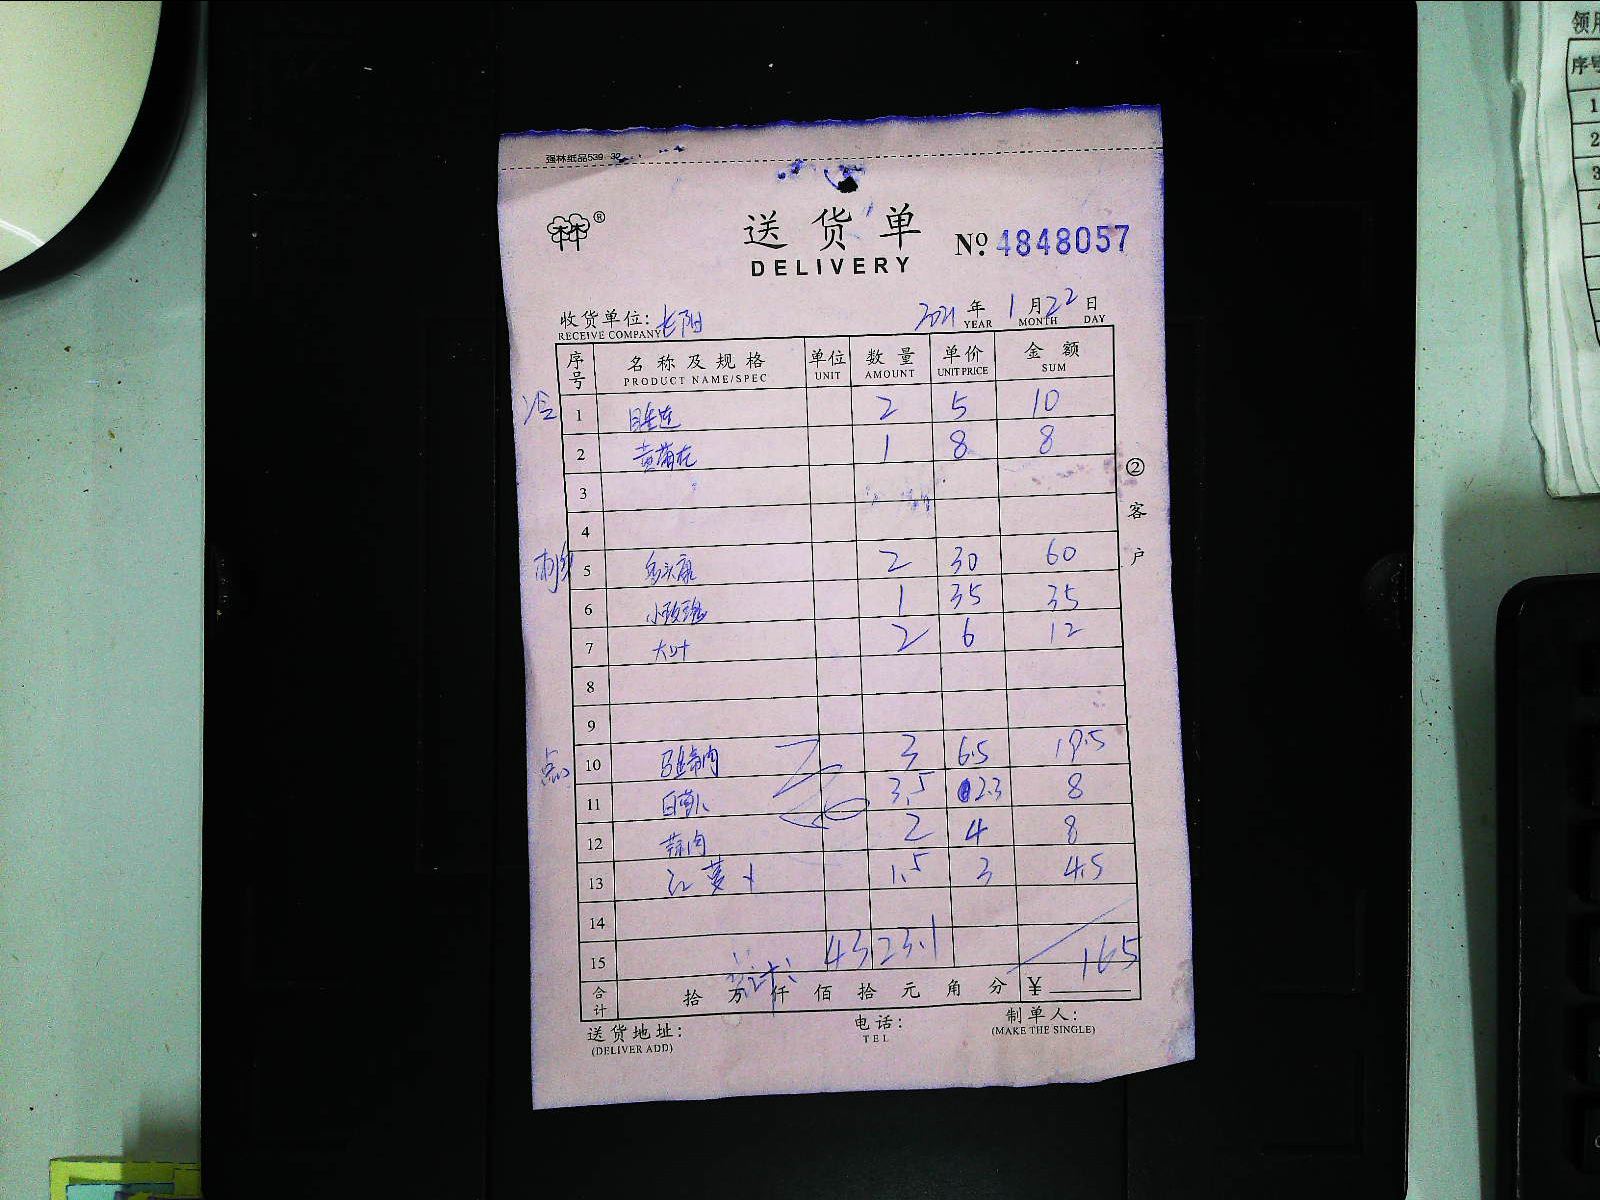 领用
序号
1
2
3
强林纸品539-32
®
送货单
DELIVERY
№ 4848057
收货单位: 长阳 2021年 1月22日
RECEIVE COMPANY YEAR MONTH DAY
序号 名称及规格 单位 数量 单价 金额
PRODUCT NAME/SPEC UNIT AMOUNT UNIT PRICE SUM
1 2 5 10
2 黄菊花 1 8 8
3
4
刺身 5 2 30 60
6 小玫瑰 1 35 35
7 大叶 2 6 12
8
9
点心 10 马蹄肉 3 6.5 19.5
11 白萝卜 3.5 2.3 8
12 蒜肉 2 4 8
13 红萝卜 1.5 3 4.5
14
15 4323.1
合计 拾万仟佰拾元角分 ¥ 165
② 客户
送货地址: 电话: 制单人:
(DELIVER ADD) TEL (MAKE THE SINGLE)